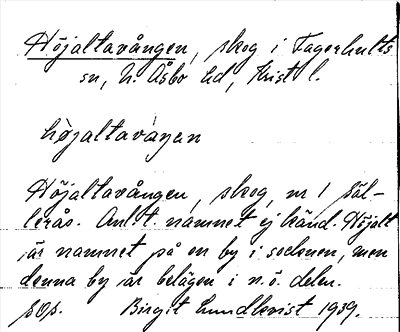 Höjaltavången, skog i Fagerhults
sn, N. Åsbo hd, Krist l.
höjaltavaŋen
Höjaltavången, skog, nr 1 Säl-
lerås. Anl. t. namnet ej känd. Höjalt
är namnet på en by i socknen, men
denna by är belägen i n.ö. delen.
Birgit Lundkvist 1939.